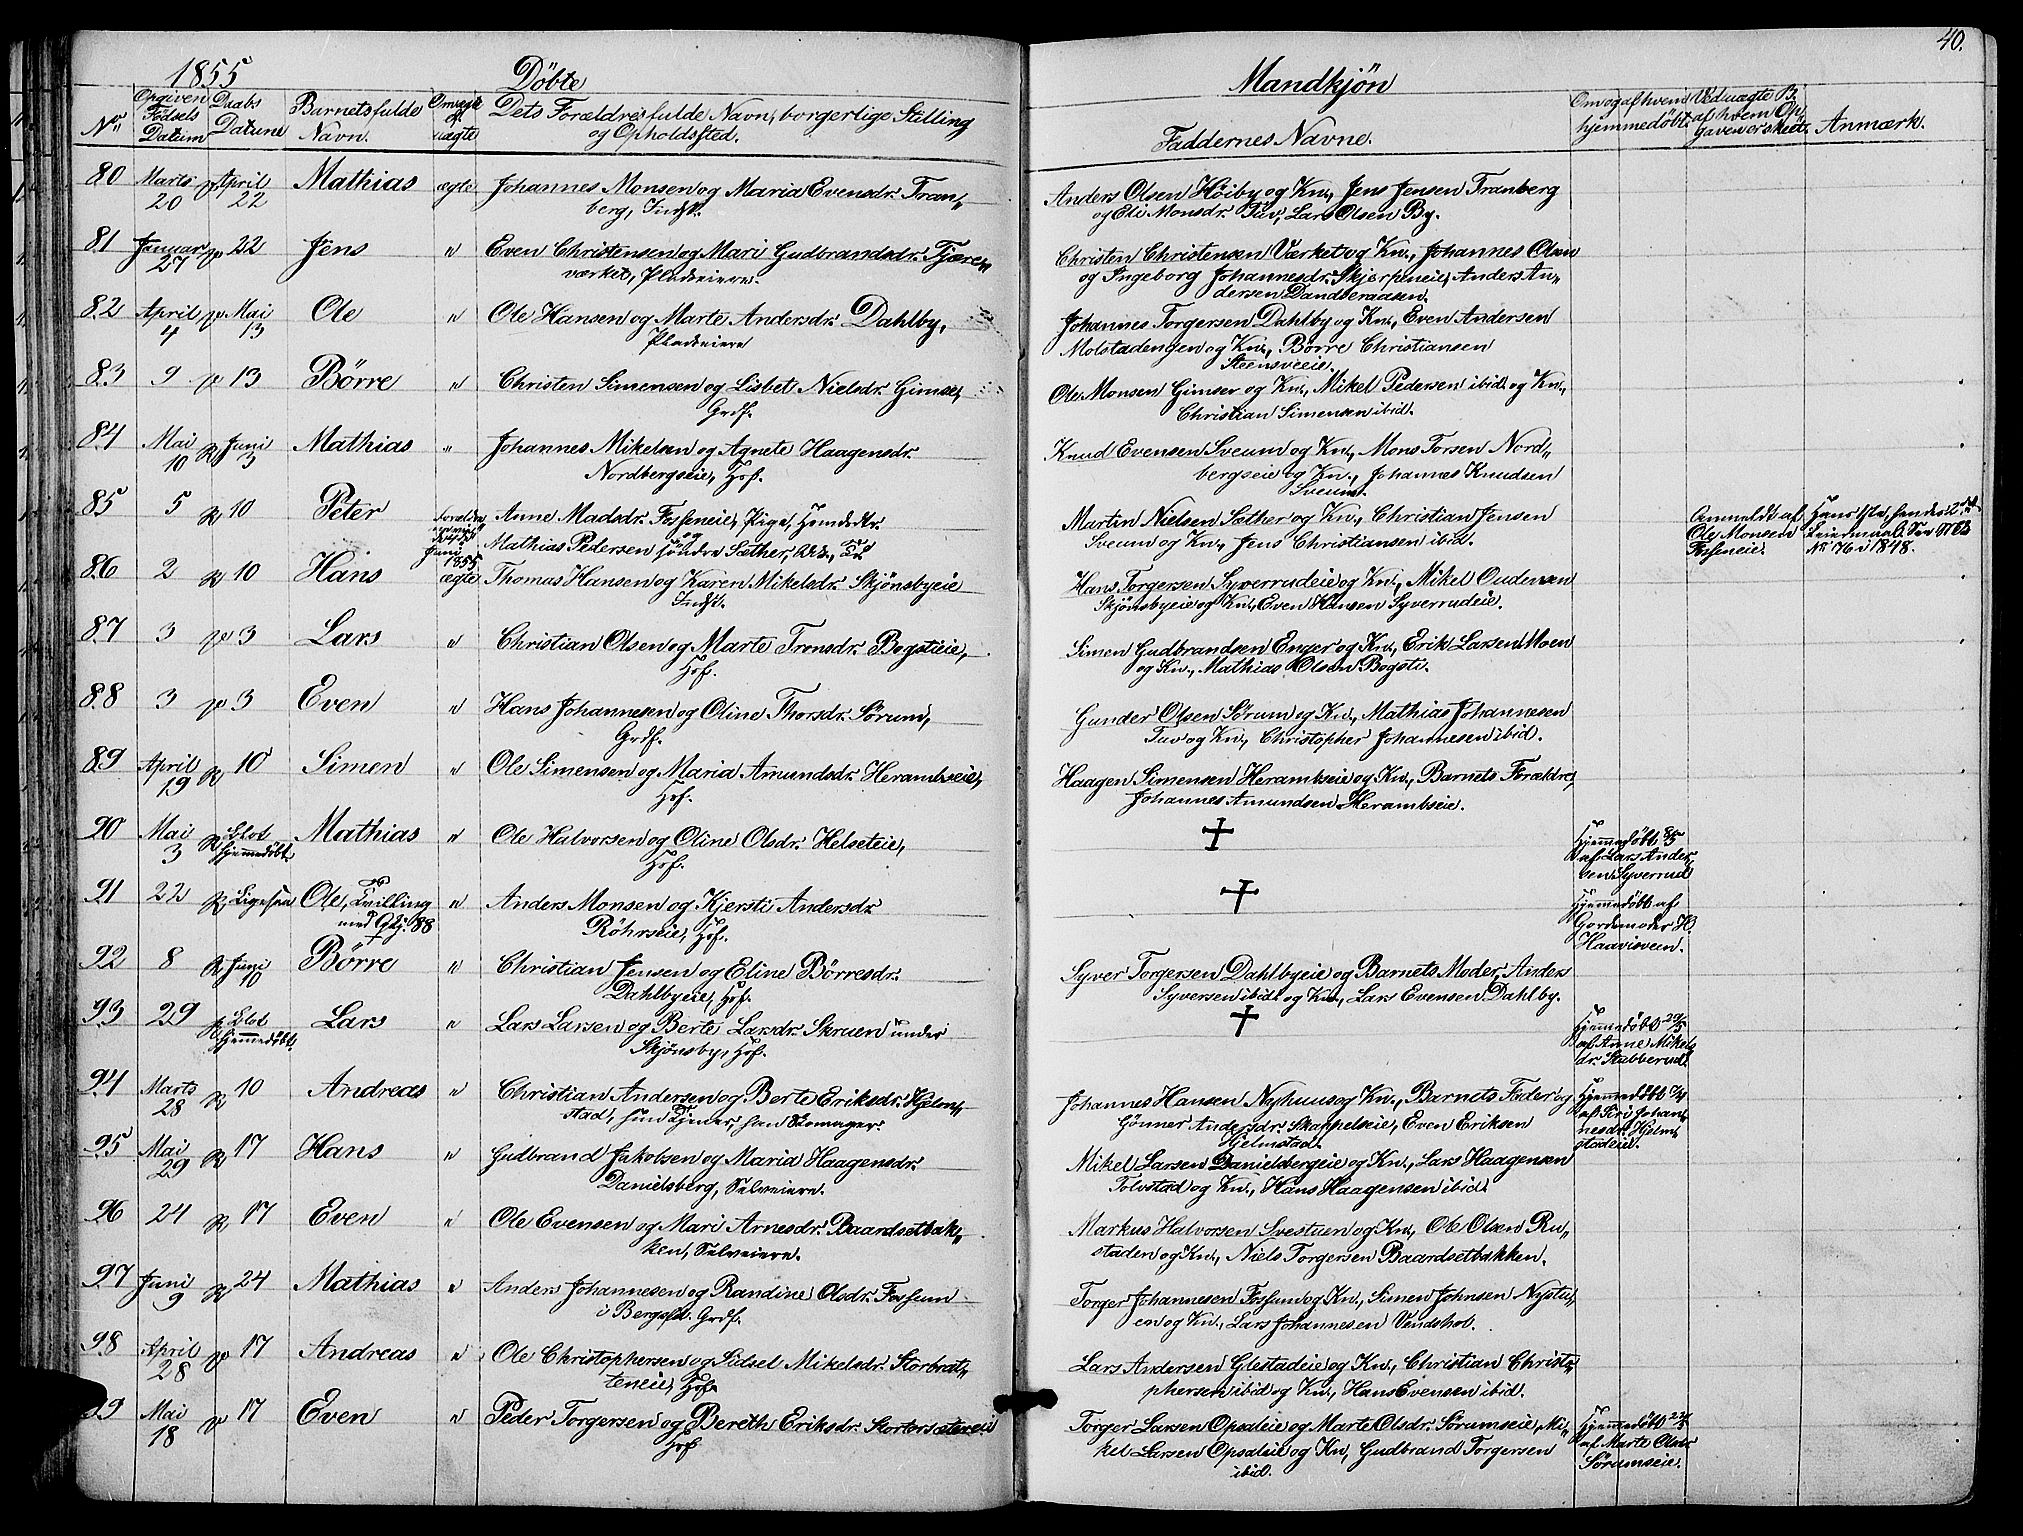 1855
Döbte
Mandkjön
40.
No.
Opgiven Fødsels Datum
Daabs Datum
Barnets fulde Navn.
Om ægte el. uægte
Dets Forældres fulde Navn, borgerlige Stilling
og Opholdsted.
Faddernes Navne.
Om og af hvem hjemmedöbt.
Ved uægte B. af hvem Opgaven er skeet.
Anmærk.
80 Marts 20 April 22 Mathias ægte Johannes Monsen og Maria Evensdr. Tran„
berg, Indst.
Anders Olsen Höiby og Kn., Jens Jensen Tranberg
og Eli Monsdr. Tuv, Lars Olsen By.
81 Januar 27 22 Jens „ Even Christensen og Mari Gudbrandsdr. Tjære„
værket, Pladseiere.
Christen Christensen Værket og Kn., Johannes Olsen
og Ingeborg Johannesdr. Skjerpeneie, Anders An„
dersen
82 April 4 Mai 13 Ole „ Ole Hansen og Marte Andersdr. Dahlby,
Pladseiere
Johannes Torgersen Dahlby og Kn., Even Andersen
Molstadengen og Kn., Börre Christiansen
Steensveeie.
83 9 13 Börre „ Christen Simensen og Lisbet Nielsdr. Gimse,
Grdf.
Ole Monsen Gimser og Kn., Mikel Pedersen ibid og Kn.,
Christian Simensen ibid.
84 Mai 10 Juni 3 Mathias „ Johannes Mikelsen og Agnete Haagensdr.
Nordbergseie, Hof.
Knud Evensen Sveum og Kn., Mons Torsen Nord„
bergseie og Kn., Johannes Knudsen
Sveum.
85 5 10 Peter Anne Madsdr. Fosseneie, Pige,
Mathias Pedersen söndre Sæther,
Martin Nielsen Sæther og Kn., Christian Jensen
Sveum og Kn., Jens Christiansen ibid.
Anmeldt af
Ole Monsen
Fosseneie.
Hans 1ste, hendes 2det
Leiermaal. See
No 76 i 1848.
86 2 10 Hans ægte Thomas Hansen og Karen Mikelsdr. Skjönsbyeie
Indst.
Hans Torgersen Syverrudeie og Kn., Mikel Oudensen
Skjönsbyeie og Kn., Even Hansen Syverrudeie.
87 3 3 Lars „ Christian Olsen og Marte Tronsdr. Bogstieie,
Hof.
Simen Gudbrandsen Enger og Kn., Erik Larsen Moen
og Kn., Mathias Olsen Bogsti.
88 3 3 Even „ Hans Johannesen og Oline Thorsdr. Sörum,
Grdf.
Gunder Olsen Sörum og Kn., Mathias Johannesen
Tuv og Kn., Christopher Johannesen ibid.
89 April 19 10 Simen „ Ole Simensen og Maria Amundsdr. Herambseie,
Hof.
Haagen Simensen Herambseie og Kn., Barnets Forældre,
Johannes Amundsen Herambseie.
90 Mai 3 Blot Hjemmedöbt. Mathias „ Ole Halvorsen og Oline Olsdr. Helseteie,
Hof.
Hjemmedöbt 8/5
af Lars Ander„
sen Syverrud
91 22 Ligesaa Ole, Tvilling „ Anders Monsen og Kjersti Andersdr.
Röhrseie, Hof.
Hjemmedöbt af
Gordemoder H.
Haavisveen.
92 8 Juni 10 Börre „ Christian Jensen og Eline Börresdr.
Dahlbyeie, Hof.
Syver Torgersen Dahlbyeie og Barnets Moder, Anders
Syversen ibid og Kn., Lars Evensen Dahlby.
93 29 Blot Hjemmedöbt. Lars „ Lars Larsen og Berte Larsdr. Skruen under
Skjönsby, Hof.
Hjemmedöbt 29/5
af Anne Mikels
dr. Stabberud.
94 Marts 28 10 Andreas „ Christian Andersen og Berte Eriksdr. Hjelm„
stad, hun Tjener, han Skomager.
Johannes Hansen Nyhuus og Kn., Barnets Fader og
Gönner Andersdr. Skappelseie, Even Eriksen
Hjelmstad.
Hjemmedöbt
af Siri Johan„
nesdr. Hjelm
stadeie.
95 Mai 29 17 Hans „ Gudbrand Jakobsen og Maria Haagensdr.
Danielsberg, Selveiere.
Mikel Larsen Danielsbergeie og Kn., Lars Haagensen
Tolvstad og Kn., Hans Haagensen ibid.
96 24 17 Even „ Ole Evensen og Mari Arnesdr. Baardsetbak„
ken, Selveiere.
Markus Halvorsen Svestuen og Kn., Ole Olsen Ru„
staden og Kn., Niels Torgersen Baardsetbakken.
97 Juni 9 24 Mathias „ Anders Johannesen og Randine Olsdr. Fossum
i Grdf.
Torger Johannesen Fossum og Kn., Simen Johnsen Nystu„
en og Kn., Lars Johannesen
98 April 28 17 Andreas „ Ole Christophersen og Sidsel Mikelsdr. Storbrat„
teneie, Hof.
Lars Andersen Glestadeie og Kn., Christian Christo„
phersen ibid og Kn., Hans Evensen ibid.
99 Mai 18 17 Even „ Peder Torgersen og Bereth Eriksdr.
Hof
Torger Larsen Opsaleie og Marte Olsdr. Sörumseie, Mi„
kel Larsen Opsaleie og Kn., Gudbrand Torgersen
ibid.
Hjemmedöbt
af Marte Olsdr.
Sörumseie.